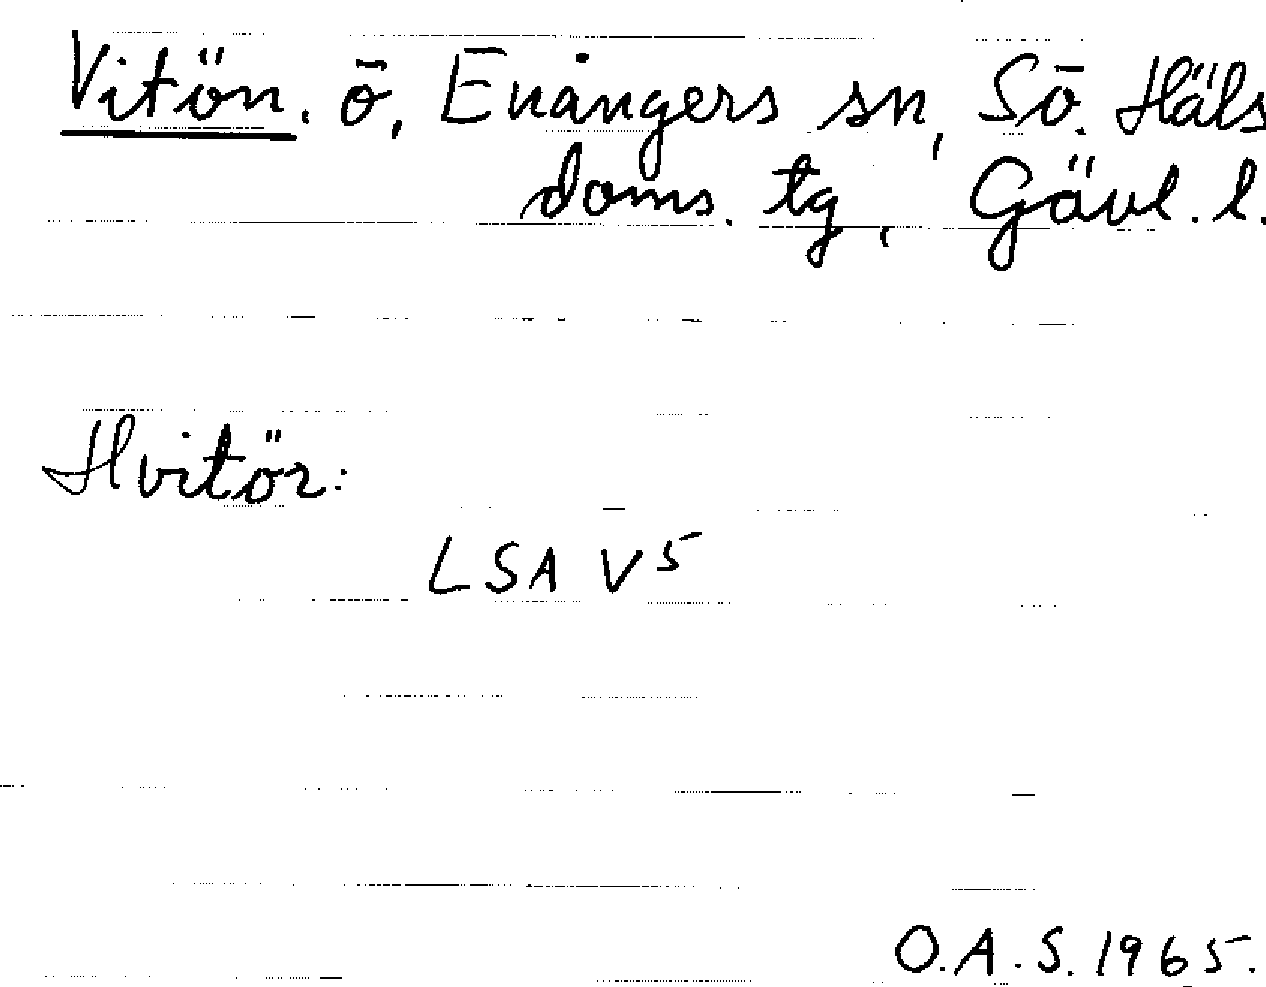 Vitön. ö, Enångers sn, Sö. Häls
doms. tg, Gävl. l.
Hvitör:
LSA V5
O.A.S. 1965.